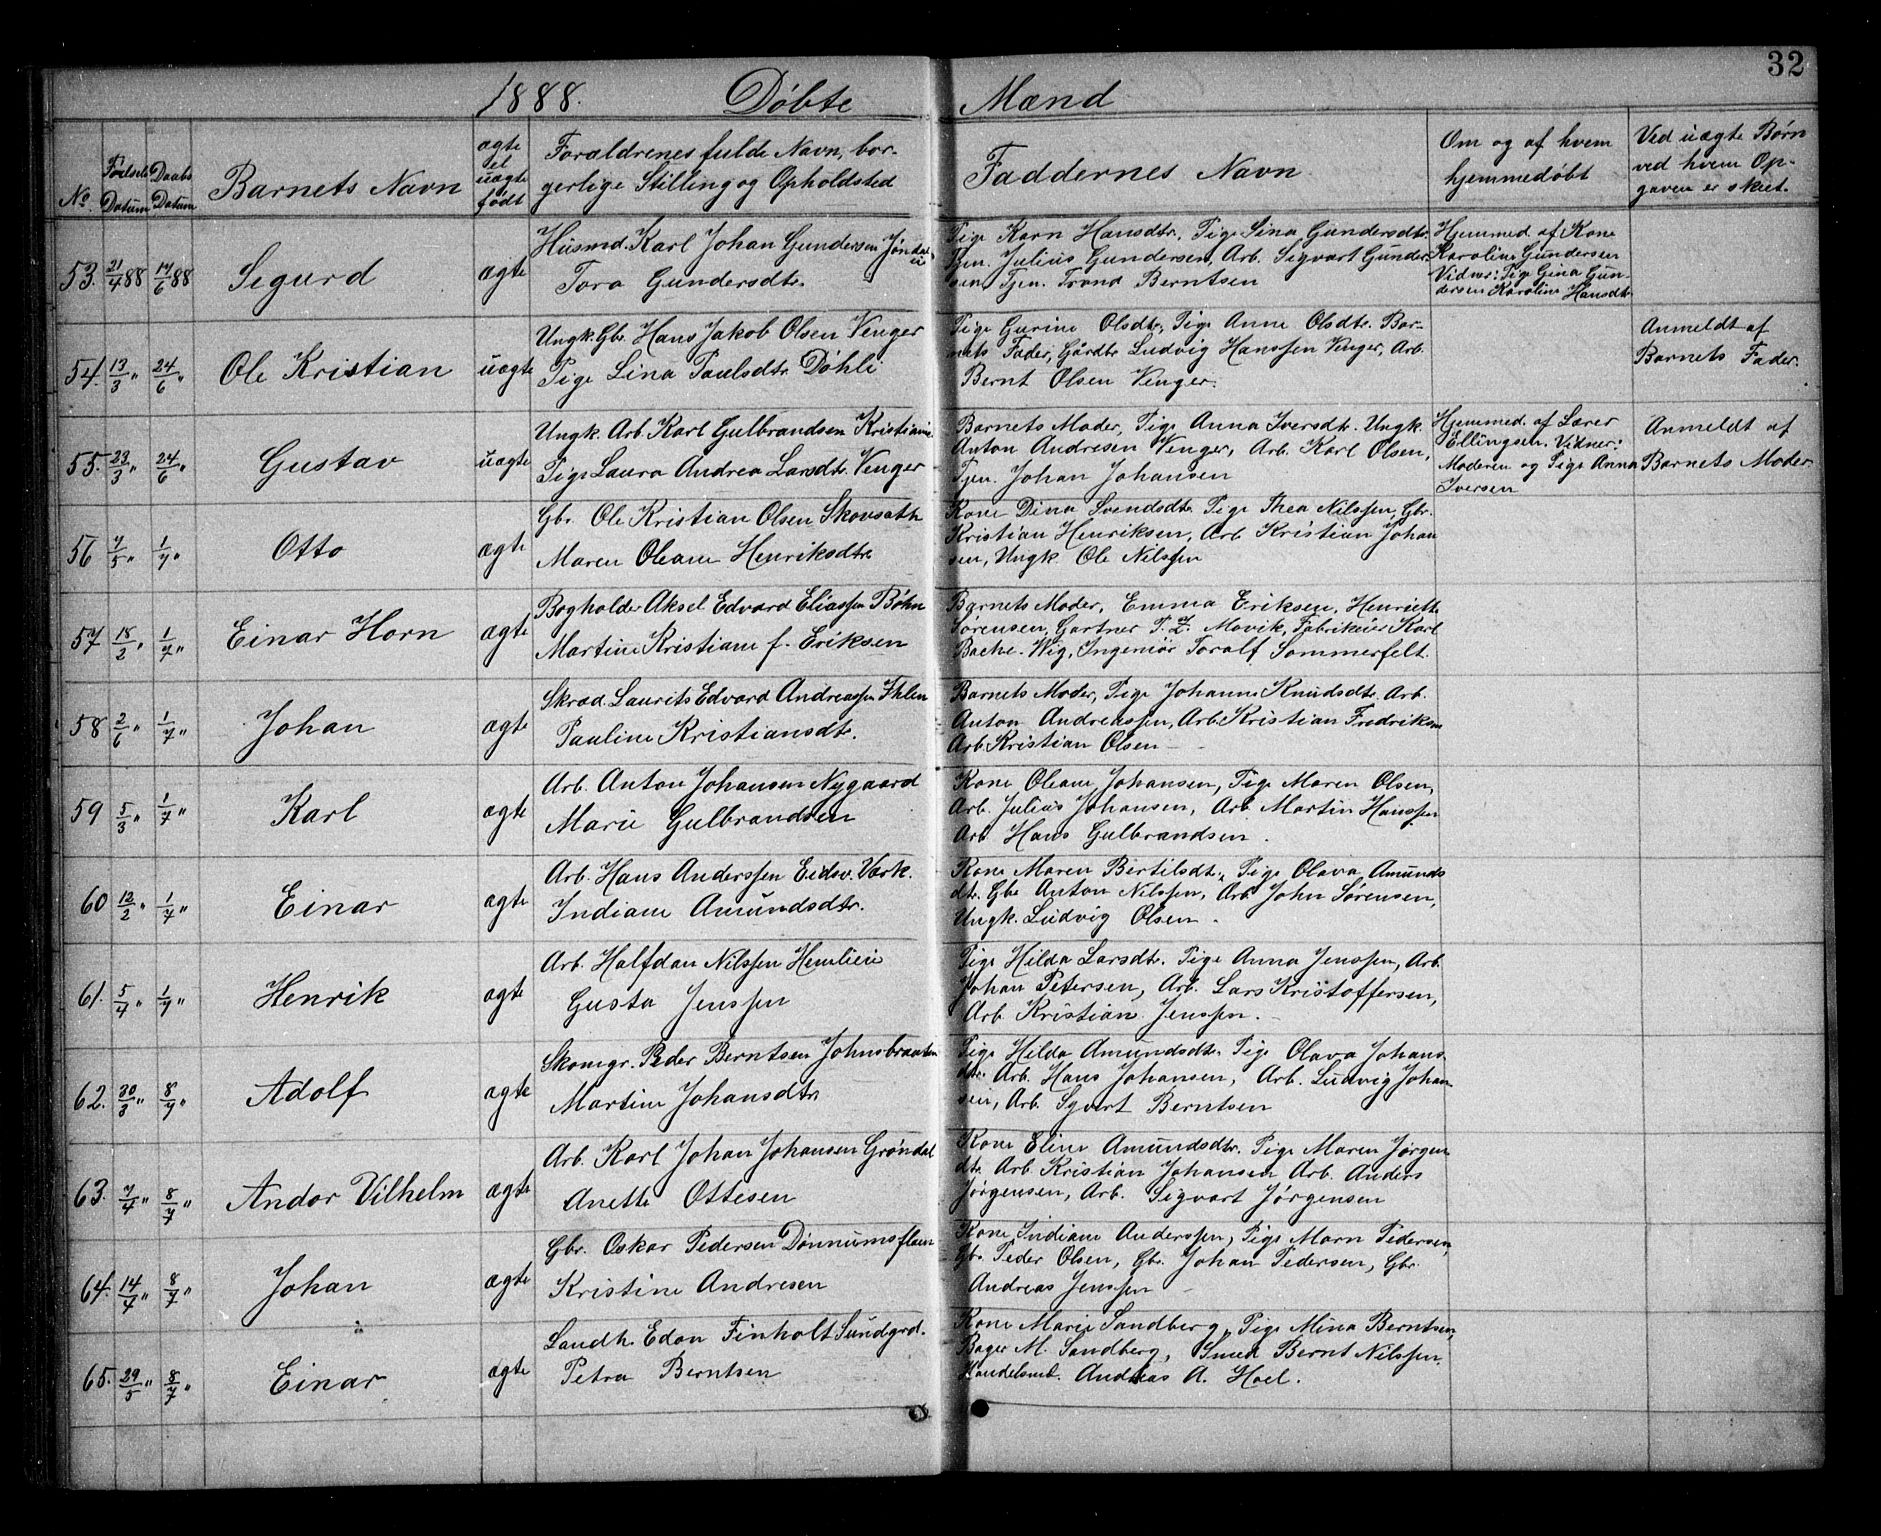 32
1888. Døbte Mænd
No.
Fødsels Datum
Daabs Datum
Barnets Navn
ægte el uægte født
Forældrenes fulde Navn, bor-
gerlige Stilling og Opholdsted
Faddernes Navn
Om og af hvem
hjemmedøbt
Ved uægte Børn
ved hvem Op-
gaven er skeet.
53. 21/4 88 17/6 88 Segurd ægte
Husmd. Karl Johan Gundersen
Tora Gundersdtr.
Pige Karn Hansdtr, Pige Lina Gundersdtr.
Tjen. Julius Gundersen, Arb. Sigvart Gunder
sen Tjen. Trond Berntsen
Hjemmed. af Kone
Karoline Gundersen
Vidner: Pige Gina Gun-
dersen Karoline Hansdtr.
54. 13/3 " 24/6 " Ole Kristian uægte
Ungk. Gbr. Hans Jakob Olsen Venger
Pige Lina Paulsdtr. Døhli
Pige Gurine Olsdtr, Pige Anne Olsdtr. Bar-
nets Fader, Gårdbr Ludvig Hanssen Venger, Arb.
Bernt Olsen Venger.
Anmeldt af
Barnets Fader.
55. 23/3 " 24/6 " Gustav uægte
Ungk. Arb. Karl Gulbrandsen Kristiania.
Pige Laura Andrea Larsdtr. Venger
Barnets Moder, Pige Anna Iversdtr. Ungk.
Anton Andresen Venger, Arb. Karl Olsen,
Tjen. Johan Johansen
Hjemmed. af Lærer
Ellingsen. Vidner:
Moderen og Pige Anna
Iversen
Anmeldt af
Barnets Moder
56 7/5 " 1/7 " Otto ægte
Gbr. Ole Kristian Olsen Skovsæth
Maren Oleane Henriksdtr.
Kone Dina Svendsdtr. Pige Thea Nilssen, Gbr.
Kristian Henriksen, Arb. Kristian Johan
sen, Ungk. Ole Nilssen
57 18/2 " 1/7 " Einar Horn ægte
Bogholder Aksel Edvard Eliassen Bøhn
Martine Kristiane f. Eriksen
Barnets Moder, Emma Eriksen, Henriette
Sørensen, Gartner P. Z. Movik, Fabrikeier Karl
Bache-Wig, Ingeniør Toralf Sommerfelt.
58 2/6 " 1/7 " Johan ægte
Skræd. Laurits Edvard Andreassen Ihlen
Pauline Kristiansdtr.
Barnets Moder, Pige Johanne Knudsdtr. Arb.
Anton Andreassen, Arb. Kristian Fredriksen
Arb. Kristian Olsen
59 5/3 " 1/7 " Karl ægte
Arb. Anton Johansen Nygaard
Marie Gulbrandsen
Kone Oleane Johansen, Pige Maren Olsen,
Arb. Julius Johansen, Arb. Martin Hanssen
Arb. Hans Gulbrandsen.
60 12/2 " 1/7 " Einar ægte
Arb. Hans Anderssen Eidsv. Værk.
Indiane Amundsdtr.
Kone Maren Bertilsdtr., Pige Olava Amunds
dtr. Gbr Anton Nilssen, Arb John Sørensen,
Ungk. Ludvig Olsen.
61. 5/4 " 1/7 " Henrik ægte
Arb. Halfdan Nilssen
Gusta Jenssen
Pige Hilda Larsdtr. Pige Anna Jenssen, Arb.
Johan Petersen, Arb. Lars Kristoffersen,
Arb. Kristian Jenssen.
62. 30/3 " 8/7 " Adolf ægte
Skomgr. Peder Berntsen Johnsbraaten
Martine Johansdtr.
Pige Hilda Amundsdtr. Pige Olava Johans
dtr. Arb. Hans Johansen, Arb. Ludvig Johan
sen, Arb. Syvert Berntsen
63. 7/4 " 8/7 " Andor Vilhelm ægte
Arb. Karl Johan Johansen Grøndal
Anette Ottesen
Kone Eline Amundsdtr. Pige Maren Jørgen
dtr. Arb. Kristian Johansen Arb. Anders
Jørgensen, Arb. Sigvart Jørgensen
64. 14/4 " 8/7 " Johan ægte
Gbr. Oskar Pedersen Dønnumsflaen
Kristine Andresen
Kone Indiane Anderssen, Pige Marn Pedersen,
Gbr Peder Olsen, Gbr. Johan Pedersen, Gbr.
Andreas Jenssen
65. 29/5 " 8/7 " Einar ægte
Landh. Edon Finholt Sundgrd.
Petra Berntsen
Kone Marie Sandberg, Pige Mina Berntsen,
Bager M. Sandberg, Smed Bernt Nilssen.
Handelsmd. Andreas A. Hoel.